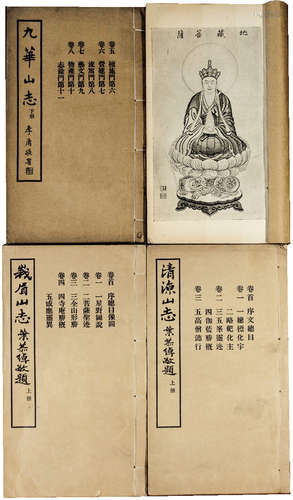 九華山志 下冊
李廣
卷五 檀施門第六
卷六 營建門第七
流寓門第八
卷七 藝文門第九
卷八 物產門第十
志餘門第十一
地藏菩薩
峨眉山志 葉恭綽敬題 上冊
卷首 序文總目像圖
卷一 一星野圖說
卷二 二菩薩聖迹
卷三 三全山形勝
卷四 四寺庵勝概
五感應靈異
清涼山志 葉恭綽敬題 上冊
卷首 序文總目
卷一 一總標化宇
二諦化主
卷二 三五峯靈迹
四伽藍勝概
卷三 五高僧德行